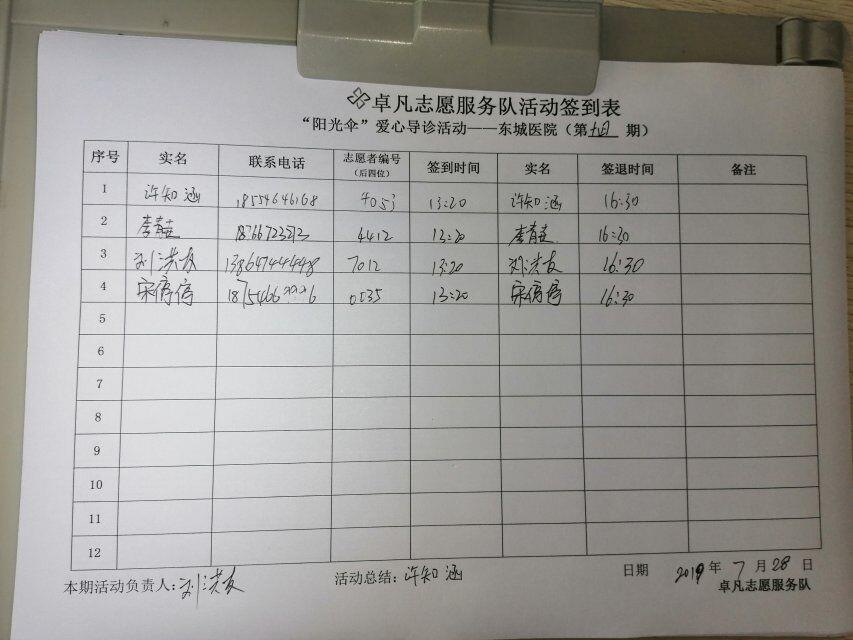 卓凡志愿服务队活动签到表
“阳光伞”爱心导诊活动——东城医院（第 期）
序号 实名 联系电话 志愿者编号（后四位） 签到时间 实名 签退时间 备注
1 许知涵 18554646168 4053 13:20 许知涵 16:30
2 李青 4412 13:20 李青 16:30
3 刘洪友 13864744448 7012 13:20 刘洪友 16:30
4 宋停停 0535 13:20 宋停停 16:30
5
6
7
8
9
10
11
12
本期活动负责人：刘洪友 活动总结：许知涵 日期 2019年7月28日
卓凡志愿服务队